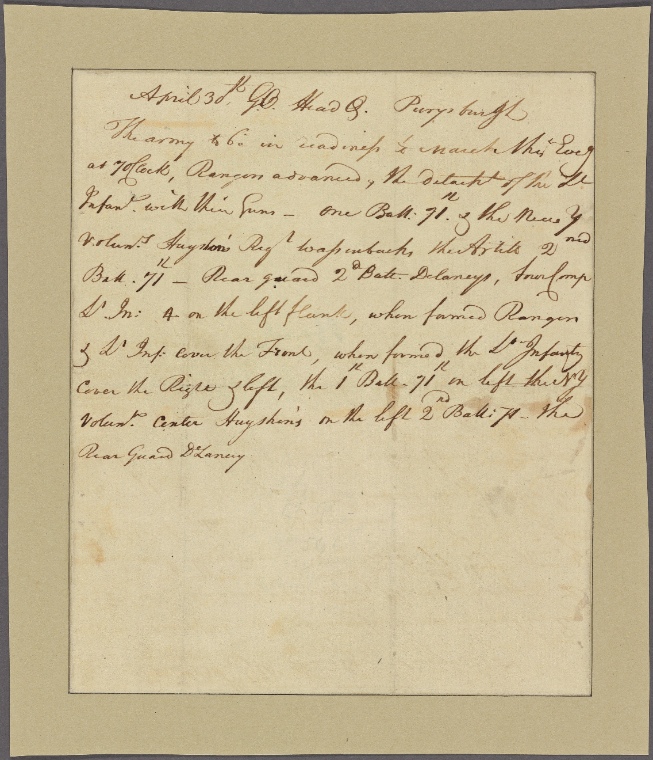 April 30th. G.O. Head Q. Purysburgh
The army to be in readiness to march this Eveg
at 7 oClock, Rangers advanced, the detacht of the Lt
Infany. with their Guns – one Batt: 71th. & the New Y
Volunts Huyshons Regt wassenbachs the Artill 2nd
Batt. 71th – Rear guard 2d Batt. Delaneys, four Comp
Lt In: 4 on the left flank, when formed Rangers
& Lt Inf: cover the Front, when formed the Lt Infanty
cover the Right & left, the 1st Batt. 71th on left the NY
Volunts. center Huyshons on the left 2nd Batt: 71 – the
Rear Guard DeLaney